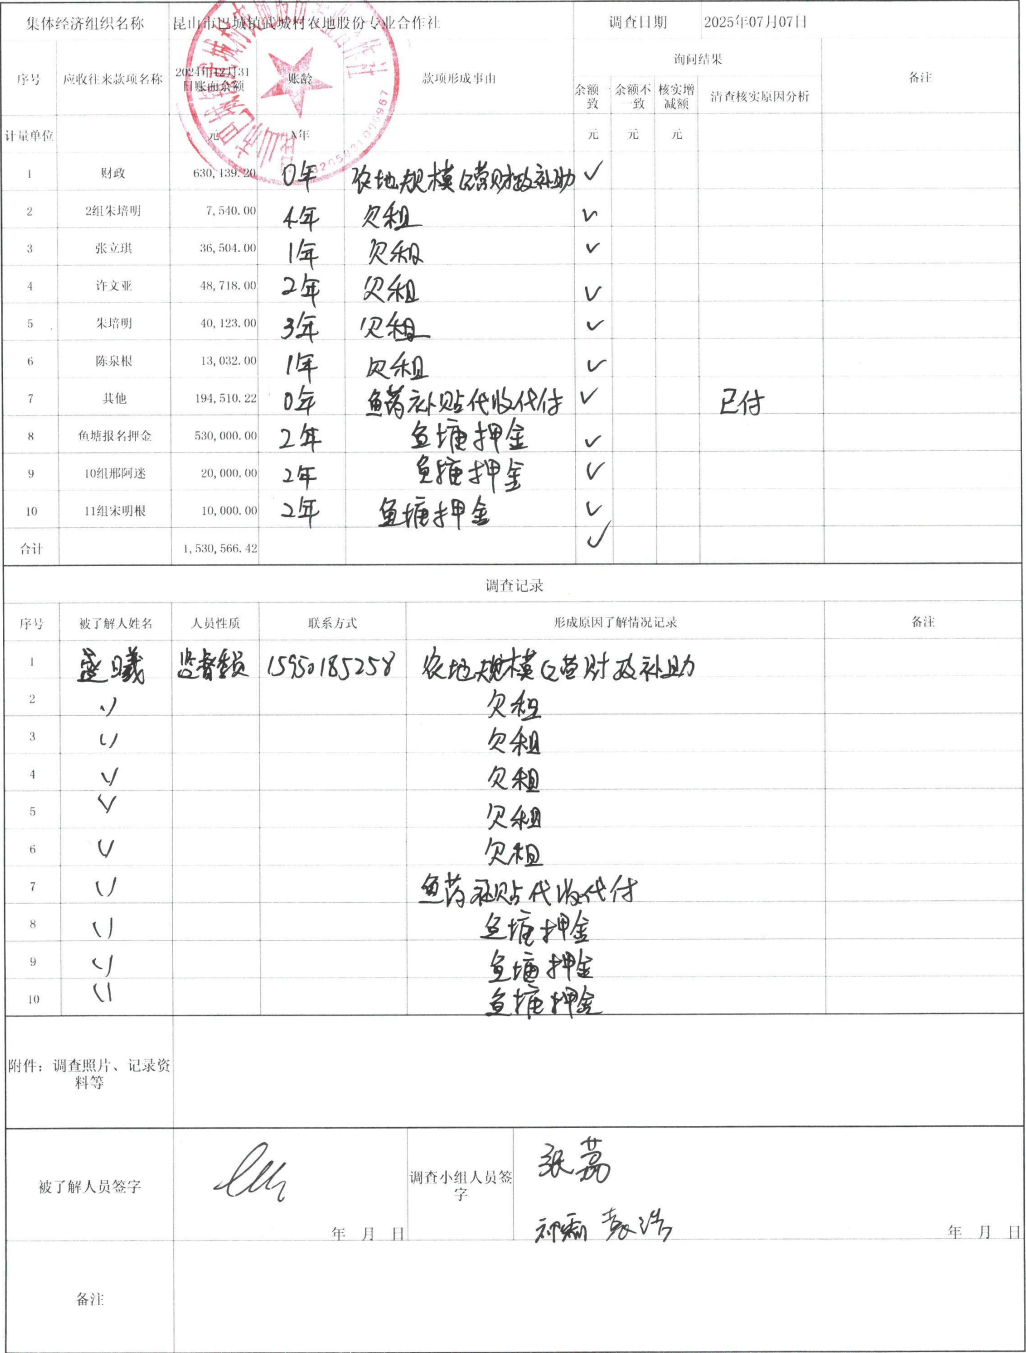 集体经济组织名称 昆山市巴城镇武城村农地股份专业合作社 调查日期 2025年07月07日
序号 应收往来款项名称 2024年12月31日账面余额 账龄 款项形成事由 询问结果 备注
余额一致 余额不一致 核实增减额 清查核实原因分析
计量单位 元 年 元 元 元
1 财政 630,139.20 0年 农地规模经营财政补助 ✓
2 2组朱培明 7,540.00 4年 欠租 ✓
3 张立琪 36,504.00 1年 欠租 ✓
4 许文亚 48,718.00 2年 欠租 ✓
5 朱培明 40,123.00 3年 欠租 ✓
6 陈泉根 13,032.00 1年 欠租 ✓
7 其他 194,510.22 0年 鱼药补贴代收代付 ✓ 已付
8 鱼塘报名押金 530,000.00 2年 鱼塘押金 ✓
9 10组邢阿迷 20,000.00 2年 鱼塘押金 ✓
10 11组宋明根 10,000.00 2年 鱼塘押金 ✓
合计 1,530,566.42 ✓
调查记录
序号 被了解人姓名 人员性质 联系方式 形成原因了解情况记录 备注
1 盛曦 15950185258 农地规模经营财政补助
2 〃 欠租
3 〃 欠租
4 〃 欠租
5 〃 欠租
6 〃 欠租
7 〃 鱼药补贴代收代付
8 〃 鱼塘押金
9 〃 鱼塘押金
10 〃 鱼塘押金
附件：调查照片、记录资料等
被了解人员签字 年 月 日 调查小组人员签字 张荔
年 月 日
备注